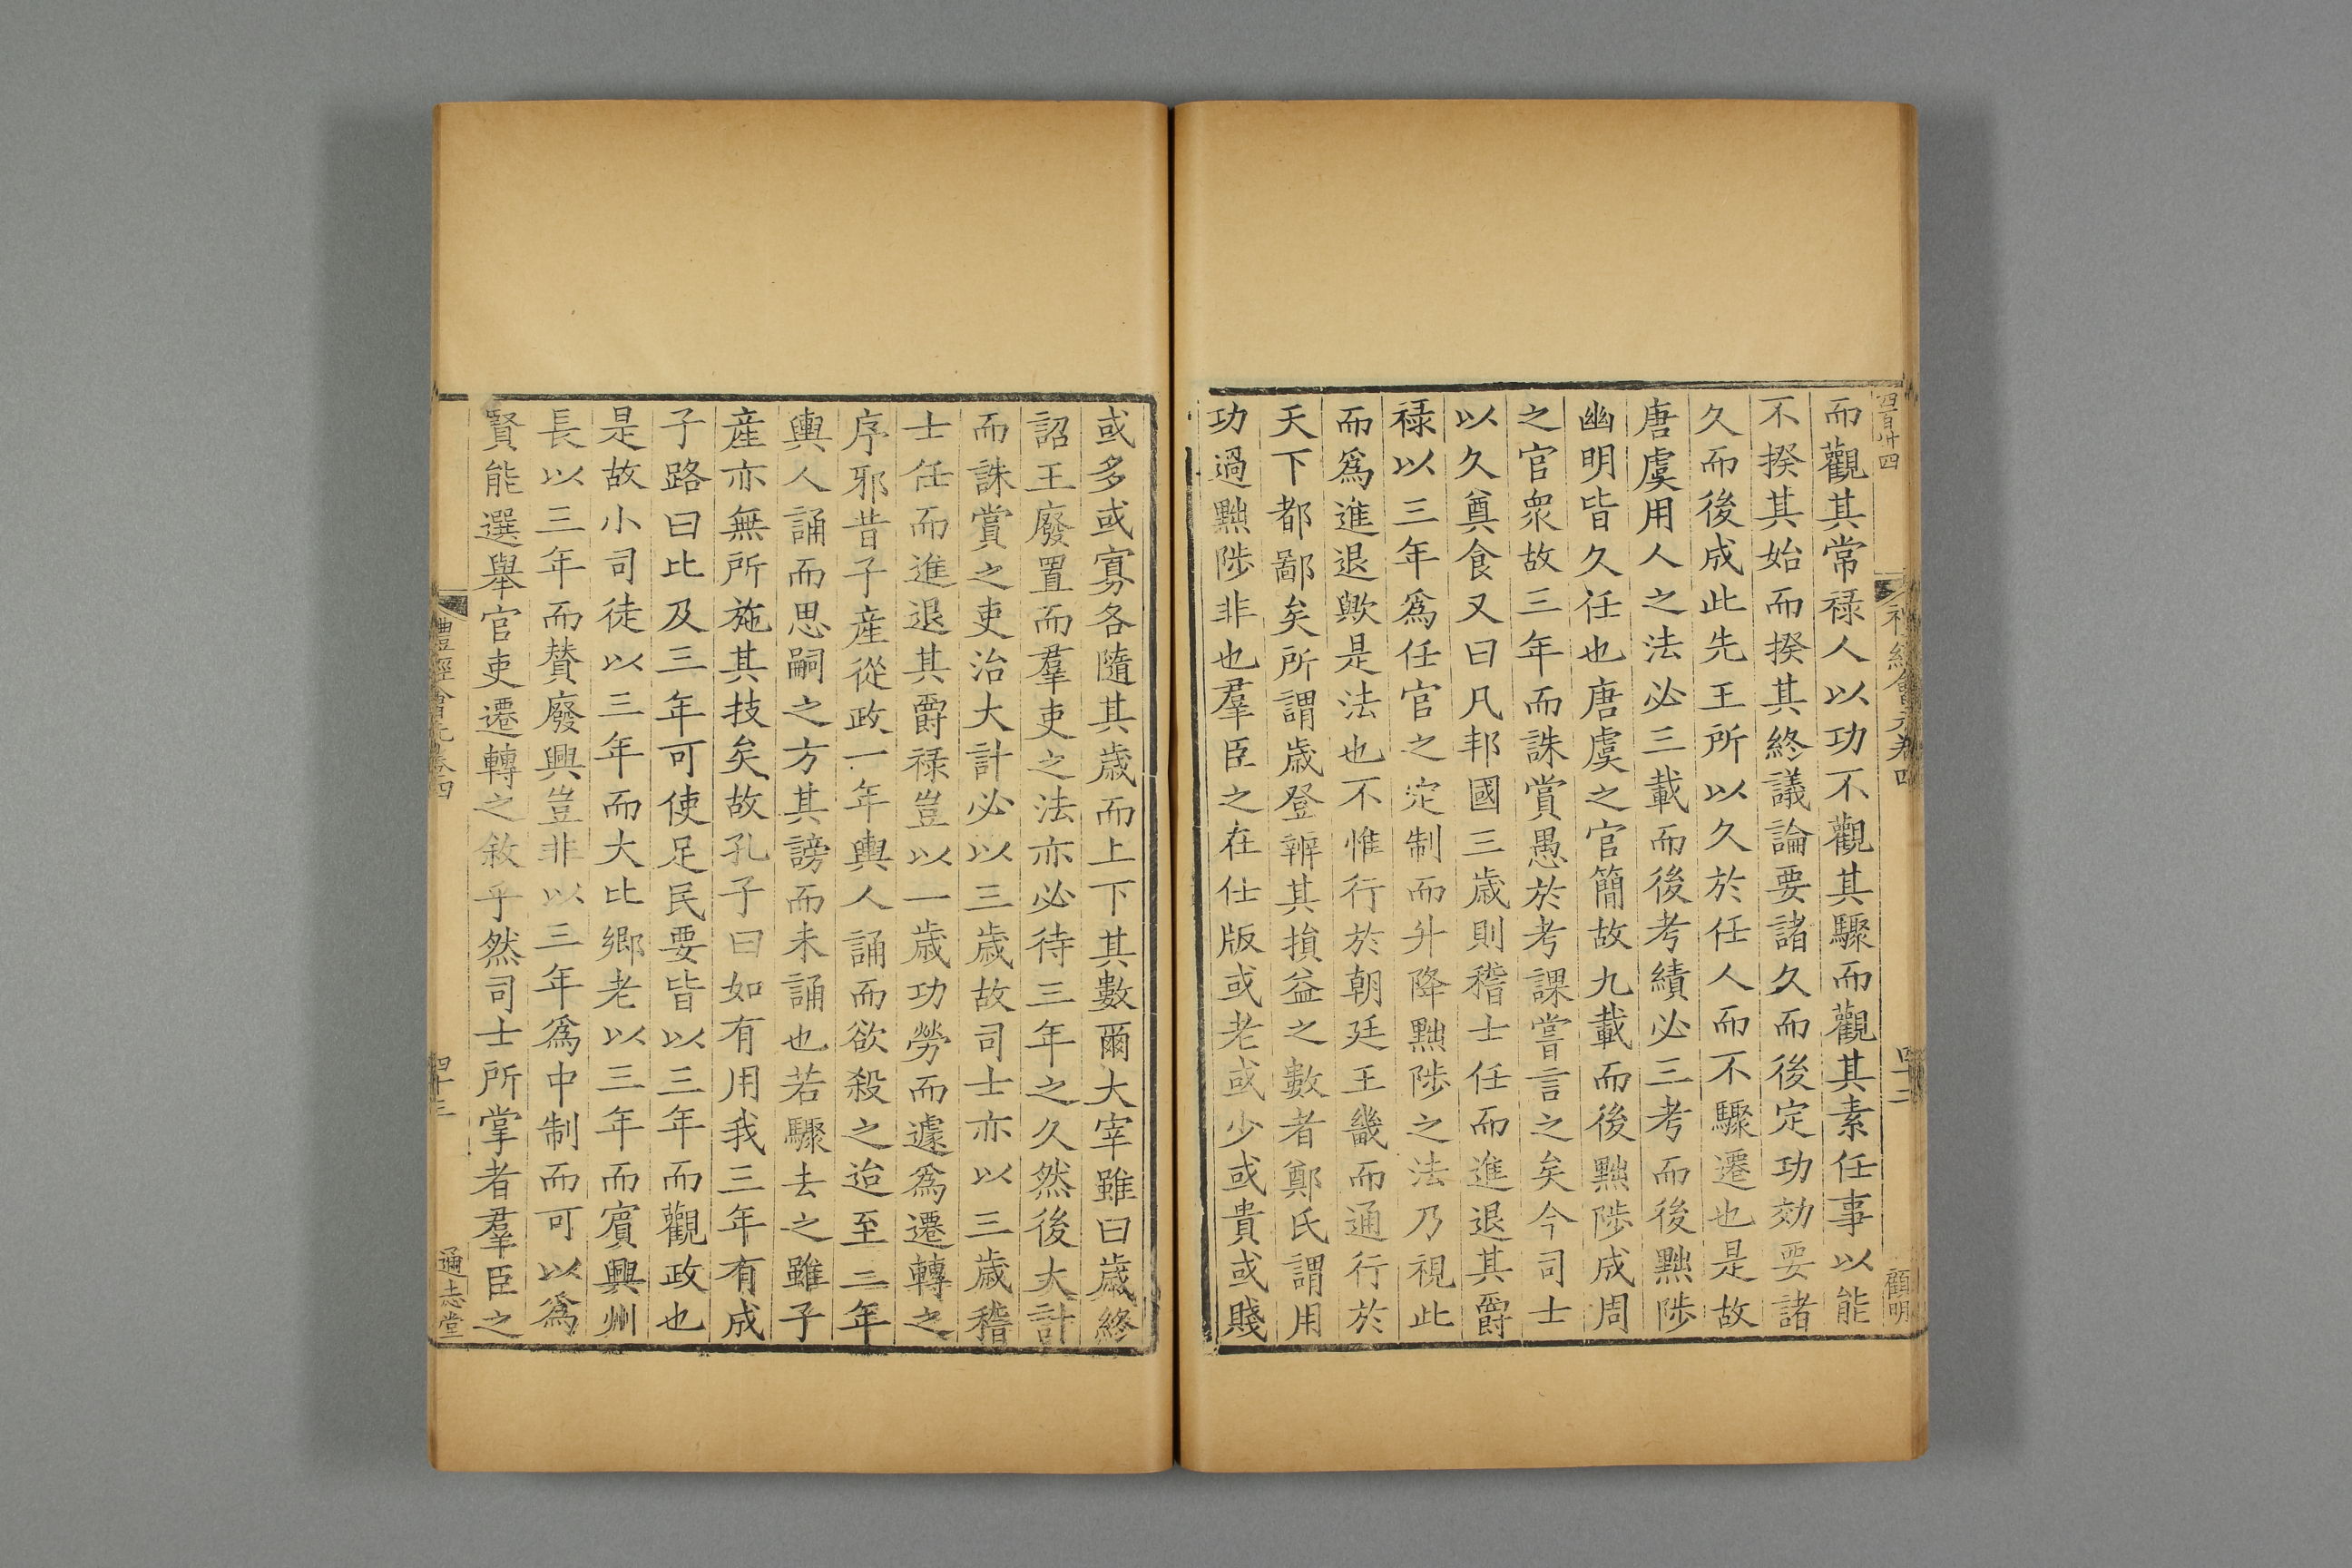 四百廿四
禮經會元卷四
四十二
顧明
而觀其常祿人以功不觀其驟而觀其素任事以能
不揆其始而揆其終議論要諸久而後定功効要諸
久而後成此先王所以久於任人而不驟遷也是故
唐虞用人之法必三載而後考績必三考而後黜陟
幽明皆久任也唐虞之官簡故九載而後黜陟成周
之官衆故三年而誅賞愚於考課嘗言之矣今司士
以久奠食又曰凡邦國三歲則稽士任而進退其爵
祿以三年爲任官之定制而升降黜陟之法乃視此
而爲進退歟是法也不惟行於朝廷王畿而通行於
天下都鄙矣所謂歲登辨其損益之數者鄭氏謂用
功過黜陟非也羣臣之在仕版或老或少或貴或賤
或多或寡各隨其歲而上下其數爾大宰雖曰歲終
詔王廢置而羣吏之法亦必待三年之久然後大計
而誅賞之吏治大計必以三歲故司士亦以三歲稽
士任而進退其爵祿豈以一歲功勞而遽爲遷轉之
序邪昔子產從政一年輿人誦而欲殺之迨至三年
輿人誦而思嗣之方其謗而未誦也若驟去之雖子
產亦無所施其技矣故孔子曰如有用我三年有成
子路曰比及三年可使足民要皆以三年而觀政也
是故小司徒以三年而大比鄉老以三年而賓興州
長以三年而贊廢興豈非以三年爲中制而可以爲
賢能選舉官吏遷轉之敘乎然司士所掌者羣臣之
禮經會元卷四
四十三
通志堂